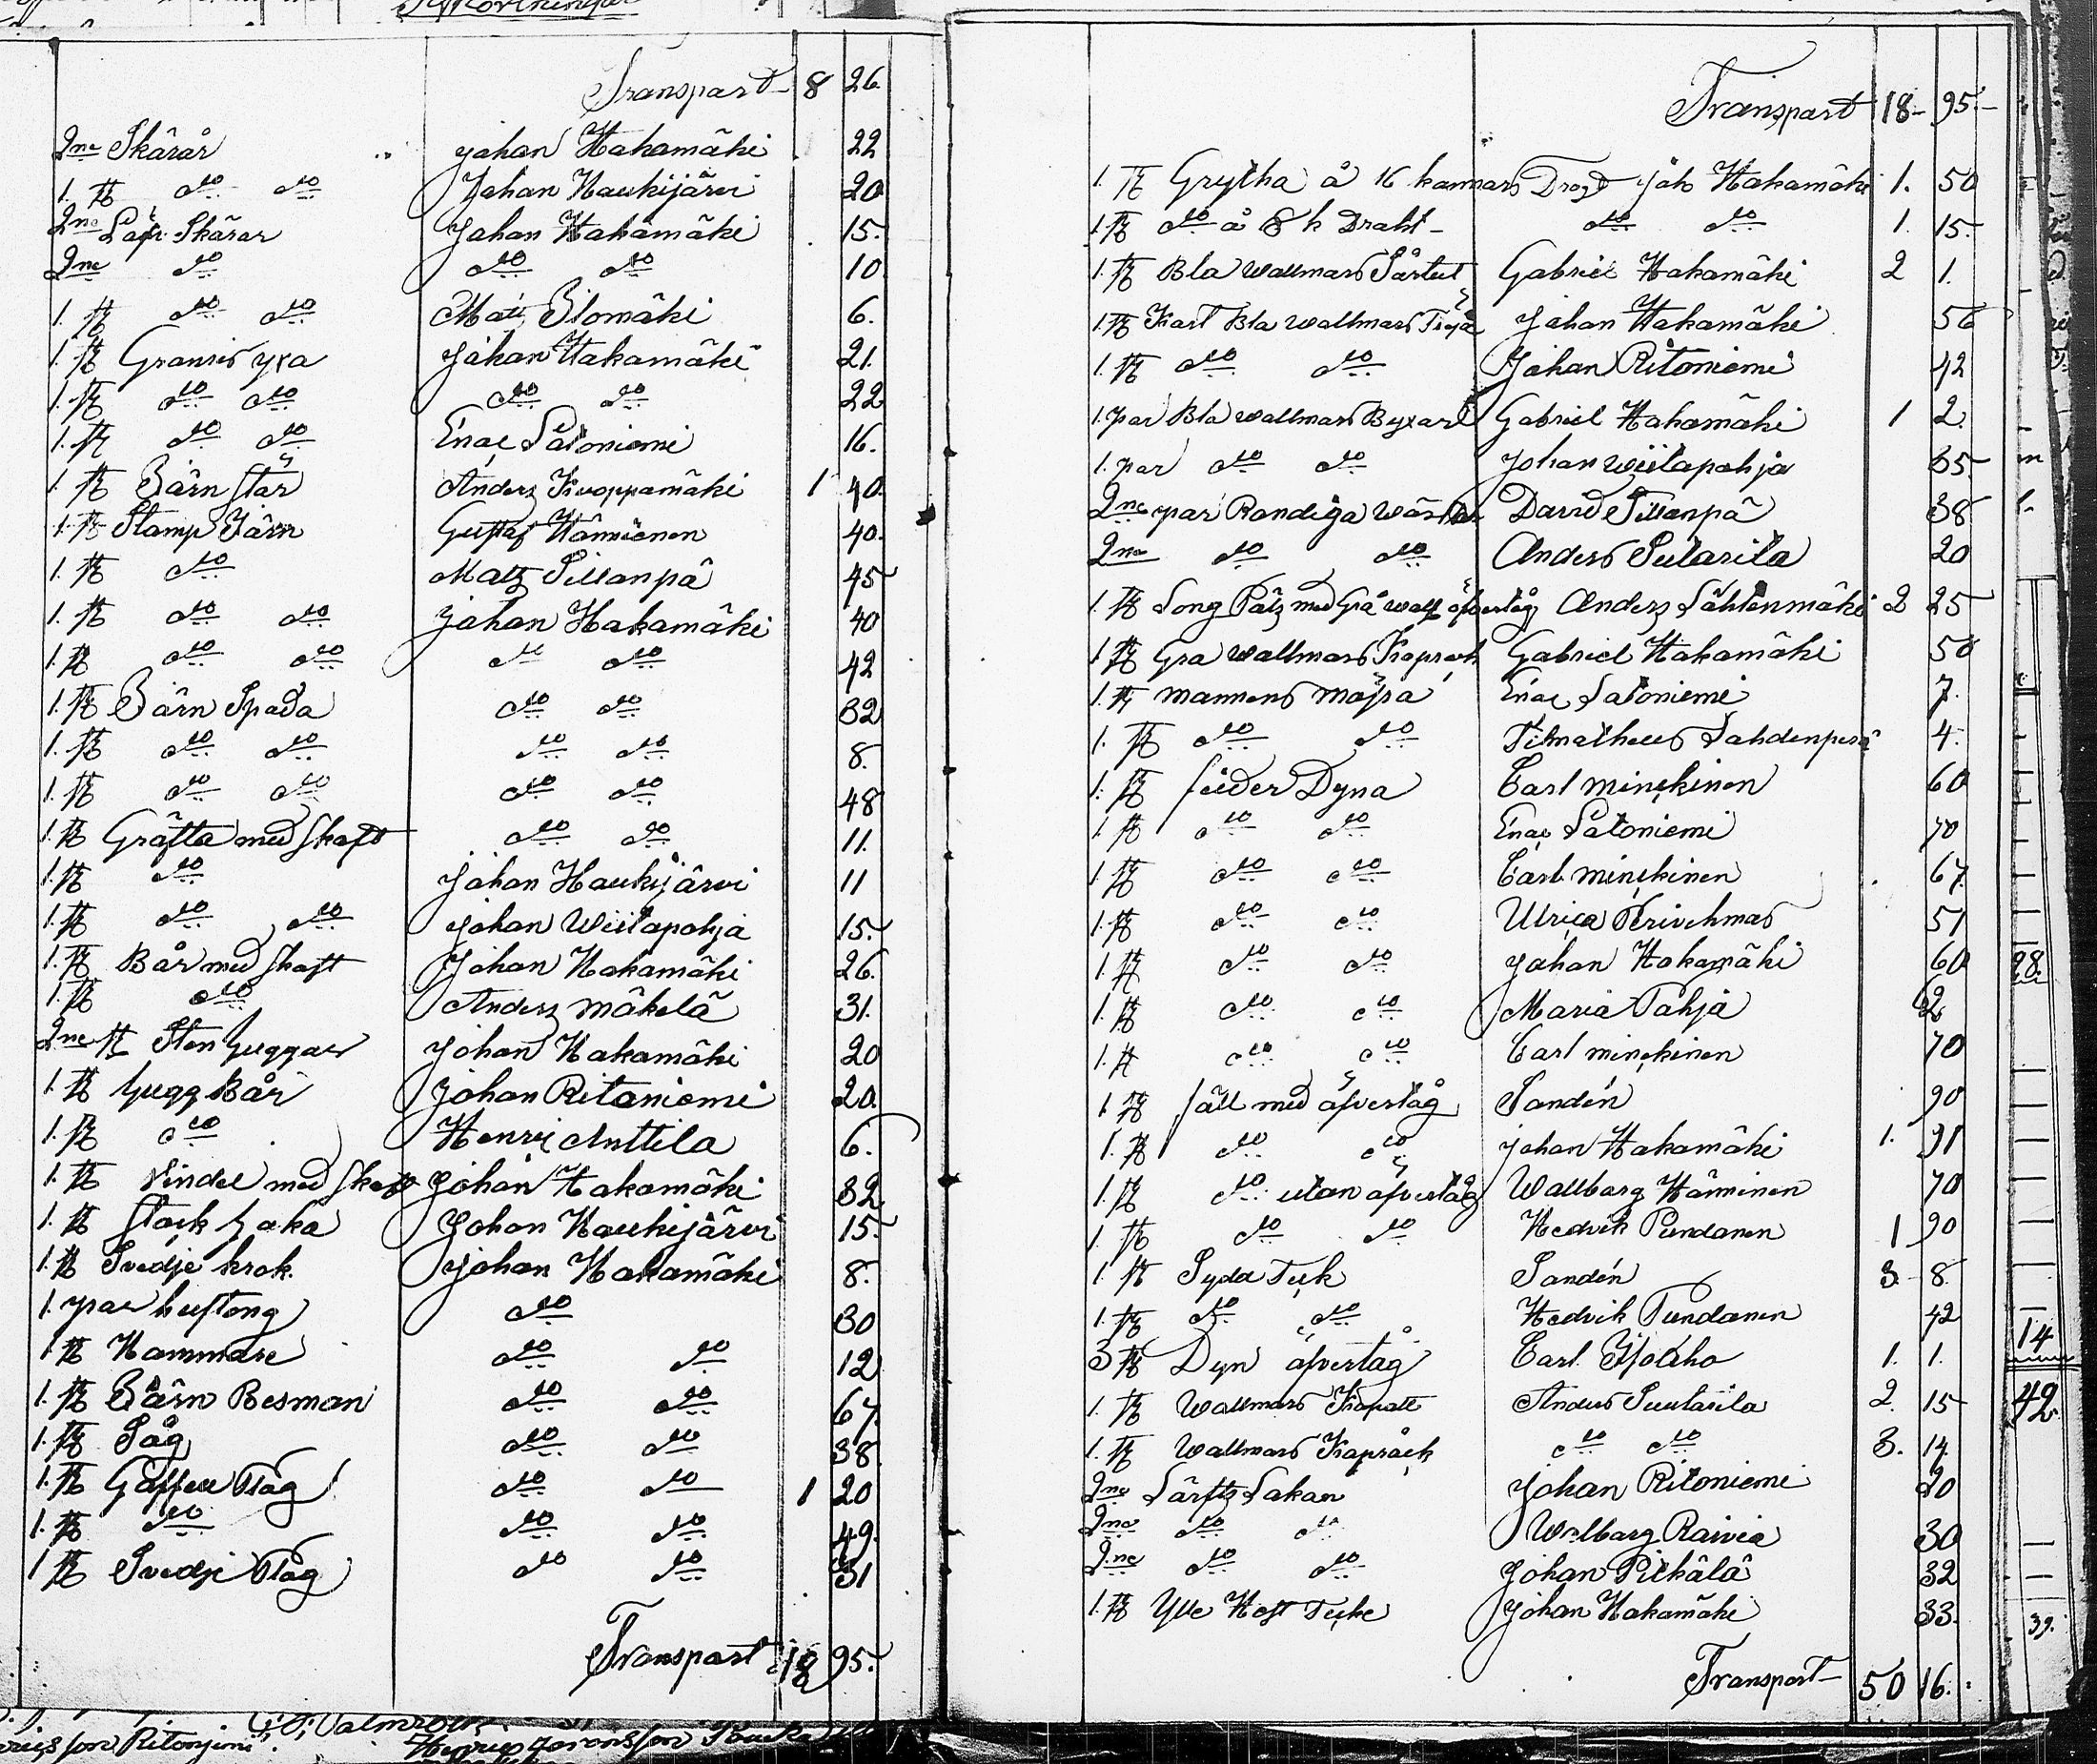 Transpart 8 26.
2ne Skärar Johan Hakamäki 22
1. st do do Johan Haukijärvi 20
2ne Skärar Johan Hakamäki 15.
2ne do do do 10.
1. st do do Matts 6.
1. st Granris yxa Johan Hakamäki 21.
1. st do do do do 22
1. st do do Enac Latoniemi 16.
1. st Järn stör Anders Kuoppamäki 1 40.
1. st Stamp Järn Gustaf Hänninen 40.
1. st do Matz Sillanpä 45
1. st do do Johan Hakamäki 40
1. st do do do do 42
1. st Järn Spada do do 32
1. st do do do do 8.
1. st do do do do 48
1. st Gräfta med skaft do do 11.
1. st do Johan Haukijärvi 11
1. st do do Johan Wiitapohja 15.
1. st Bår med skaft Johan Hakamäki 26.
1. st do Anders Mäkelä 31.
2ne st Sten huggar Johan Hakamäki 20
1. st hugg Bår Johan Ritoniemi 20.
1. st do Henric Anttila 6.
1. st med skaft Johan Hakamäki 32
1. st haka Johan Haukijärvi 15.
1. st Svedje krok. Johan Hakamäki 8.
1. par huftong do 30
1. st Hammare do do 12
1. st Järn Besman do do 67.
1. st Såg do do 38
1. st Gaffell Plog do do 1 20
1. st do do do 49.
1 st Svedje Plog do do 31
Transpart 18 95.
Transpart 18 95.
1. st Grytha å 16 kannars Johan Hakamäki 1. 50
1. st do å 8 k Draht do do 1. 15.
1. st Bla wallmars Sårtut Gabriel Hakamäki 2 1.
1. st Kart Bla wallmars Tröja Johan Hakamäki 56
1. st do do Johan Ritoniemi 42
1. par Bla wallmars Byxar Gabriel Hakamäki 1 2.
1. par do do Johan Wiitapohja 35
2ne par Randiga David Sillanpä 38
2ne do do Anders Sutarila 20
1. st Long Pälz med Grå wall öfvertåg Anders Lähtenmäki 2 25
1. st Gra wallmars Kaprock Gabriel Hakamäki 50
1. st mannens mössa Enac Latoniemi 7.
1. st do do Timatheus Lahdenperä 4.
1. st feider Dyna Carl minckinen 60
1. st do do Enac Latoniemi 70
1. st do do Carl minckinen 67.
1. st do do Ulrica 51
1. st do do Johan Hakamäki 60
1. st do do Maria Pahja 2
1. st do do Carl minckinen 70
1. st fäll med öfvertåg Sandén 90
1. st do do Johan Hakamäki 1. 91
1. st do utan öfvertåg Wallbarg Hänninen 70
1. st do do Hedvik Pundanen 1 90
1. st Sydd Teck Sandén 3. 8.
1. st do do Hedvik Pundanen 42
3 st Dyn öfvertåg Carl 1. 1.
1. st Wallmars Anders Suutarila 2. 15
1. st Wallmars Kapråck do do 3. 14.
2ne Lärftz Lakan Johan Ritoniemi 20
2ne do do Walbarg Raivia 30
2ne do do Johan Pickälä 32
1. st Ylle Hest Tecke Johan Hakamäki 33.
Transport 50 16.
28.
14
42
39.